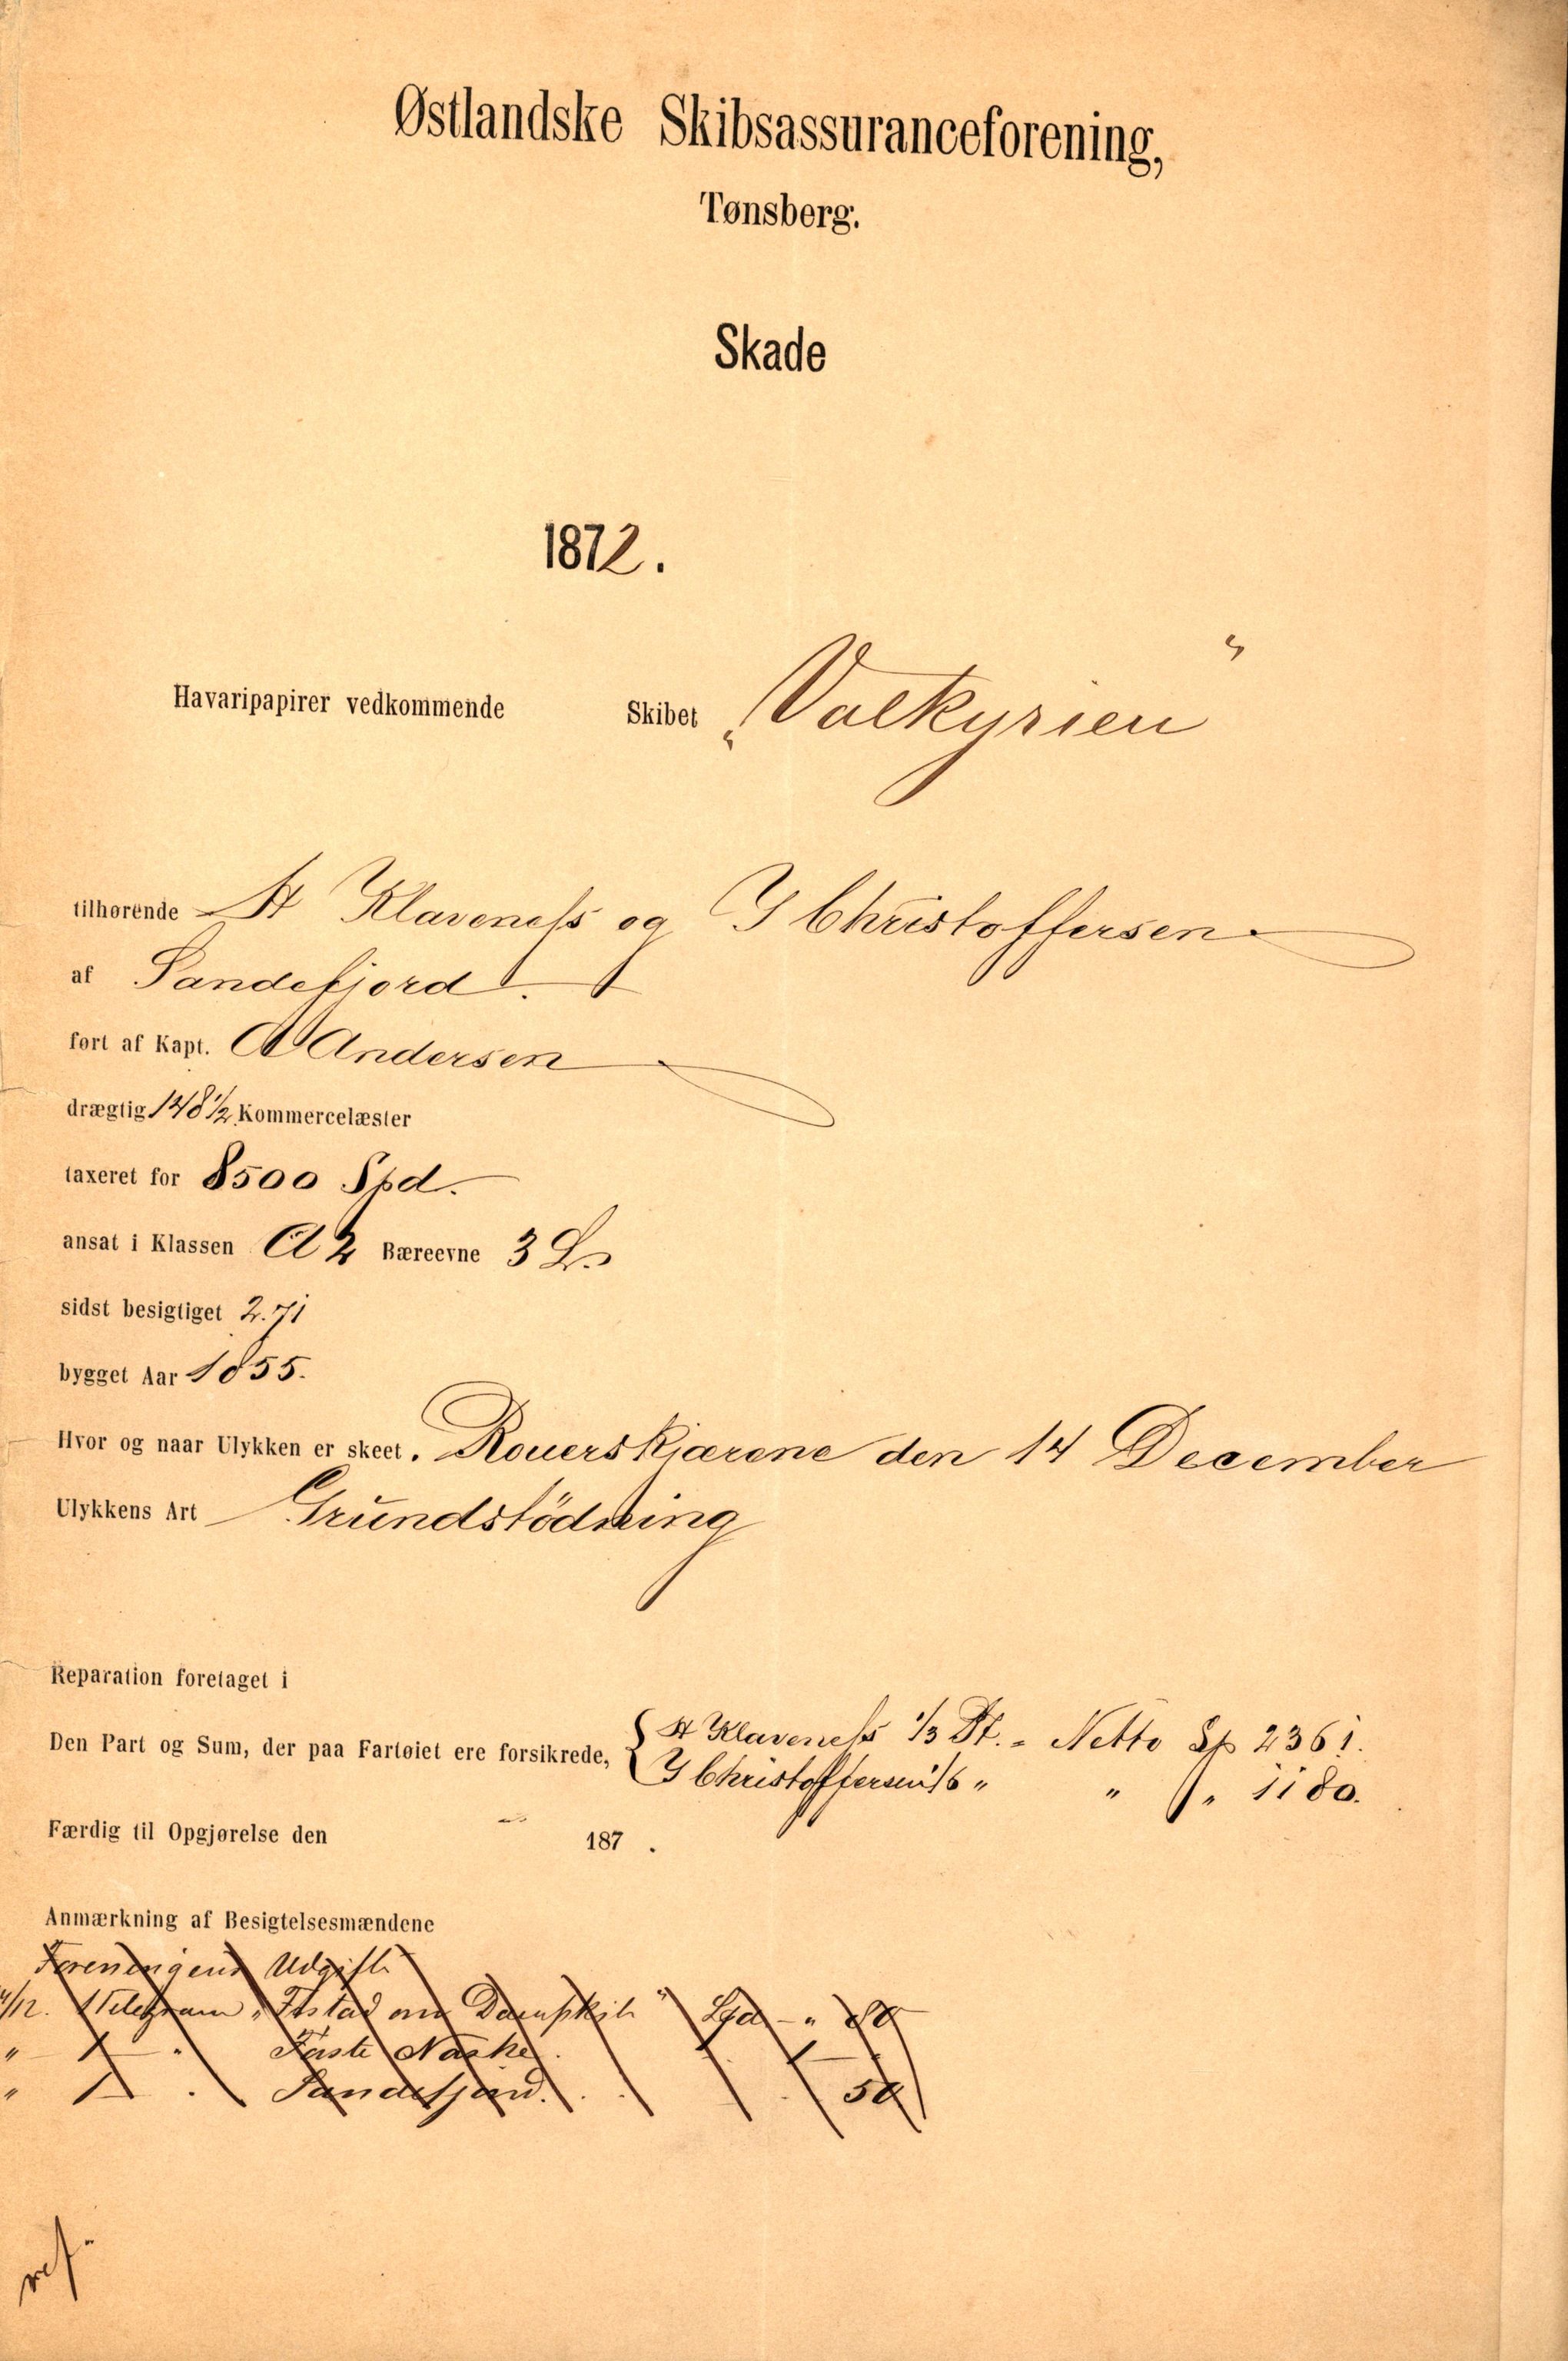 Østlandske Skibsassuranceforening,
Tønsberg.
Skade
1872.
Havaripapirer vedkommende Skibet „Valkyrien"
tilhørende A Klaveness og J Christoffersen
af Sandefjord.
ført af Kapt. A Andersen
drægtig 148 1/2 Kommercelæster
taxeret for 8500 Spd.
ansat i Klassen A 2 Bæreevne 3 L.
sidst besigtiget 2.71
bygget Aar 1855.
Hvor og naar Ulykken er skeet. Rouerskjærene den 14 December
Ulykkens Art Grundstödning
Reparation foretaget i
Den Part og Sum, der paa Fartøiet ere forsikrede, { A Klaveness 1/3 Pt. - Netto Sp 2361.
J Christoffersen 1/6 " " " 1180.
Færdig til Opgjørelse den 187 .
Anmærkning af Besigtelsesmændene
Foreningens Udgift
/12. 1 Telegram om Dampskib 80
" " "
" " Sandefjord. 50
ref.